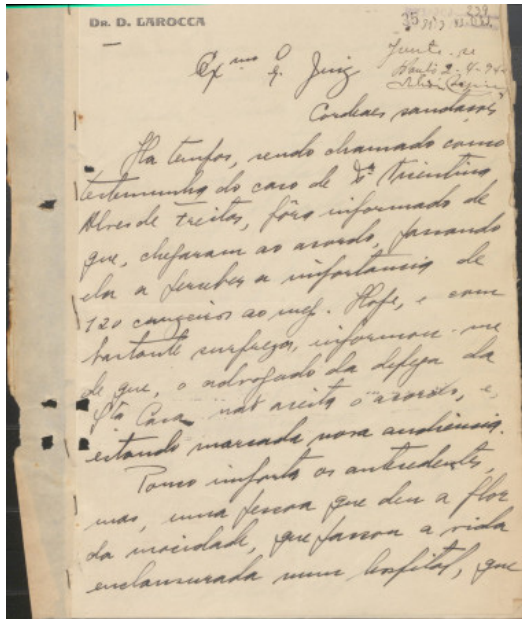 DR. D. LAROCCA
35
239
Junte-se
Santos 2-4-94
Exmo Sr. Juiz
Cordeaes saudações
Ha tempos, sendo chamado como
testemunha do caso de Da
Alves de Freitas, fôra informado de
que, chegaram ao acordo, passando
ela a perceber a importancia de
120 cruzeiros ao mez. Hoje, e com
bastante surpreza, informou-me
de que, o advogado da defeza da
Sta Casa não aceita o acordo, e,
estando marcada nova audiencia.
Pouco importa os antecedentes,
mas, uma pessoa que deu a flor
da mocidade, que passou a vida
enclausurada num hospital, que